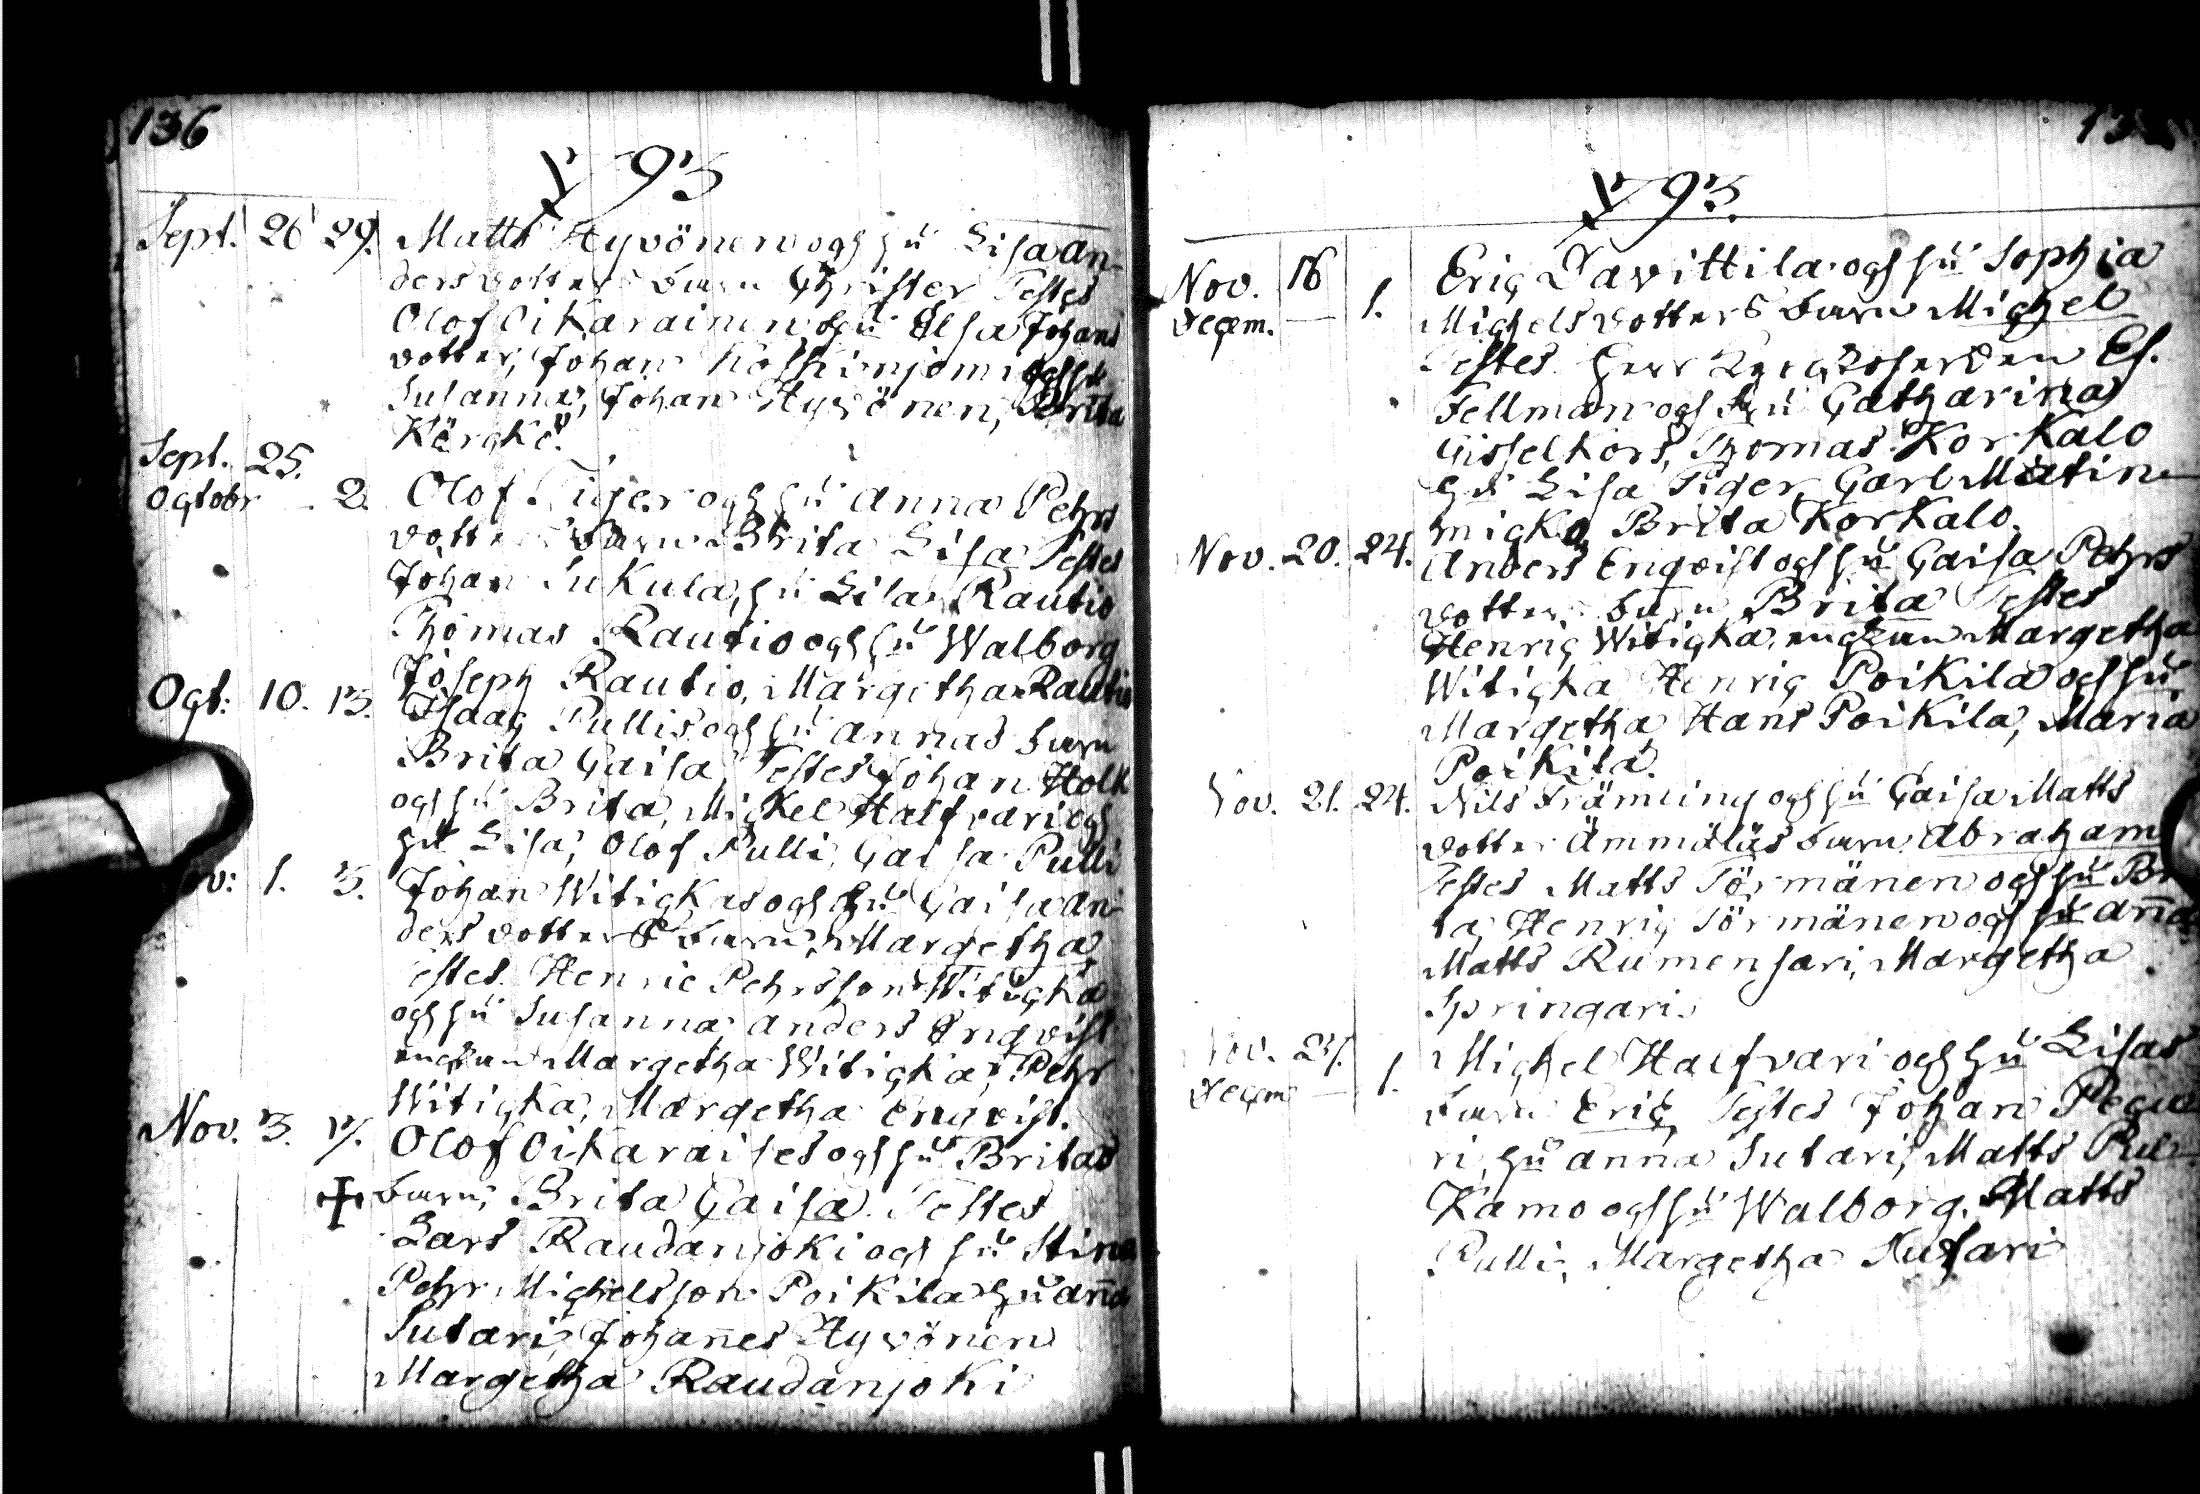 136
1793
Sept. 26 29. Matts Hyvönen och hu Lisa An-
dersdotters barn Christer Testes
Olof Oikarainen hu Elsa Johans
dotter, Johan Koskinjemi och hu
Susanna, Johan Hyvönen, Brita
Sept. 25.
Octobr 2. Olof Tiger och hu Anna Pehrs
dotters barn Brita Lisa Testes
Johan Sukula, hu Lisa Rautio
Thomas Rautio och hu Walborg
Joseph Rautio, Margetha Rautio
Oct: 10. 13. Isaac Pullis och hu Annas barn
Brita Caisa Testes Johan Holk
och hu Brita, Mickel Halfvari och
hu Lisa, Olof Pulli, Caisa Pulli
Nov: 1. 3. Johan Witickas och hu Caisa An-
dersdotters barn Margetha
Testes Henric Pehrsson Witicka
och hu Susanna Anders Enqvist
Margetha Witicka, Pehr
Witicka, Margetha Enqvist.
Nov. 3. 7. Olof Oikaraises och hu Britas
barn, Brita Caisa. Testes
Lars Raudanjoki och hu Stina
Pehr Michelsson Poikila hu Anna
Sutari, Johannes Hyvönen
Margetha Raudanjoki
1793.
Nov. 16 Eric Tavittila och hu Sophia
Decem. — 1. Michelsdotters barn Michel
Testes Herr Es.
Fellman och hu Catharina
Gisselkors, Thomas Korkalo
hu Lisa Tiger, Carl Matin-
micko Brita Korkalo.
Nov. 20. 24. Anders Enqvist och hu Caisa Pehrs
dotters barn Brita Testes
Henric Witicka, Margetha
Witicka Henric Poikila och hu
Margetha Hans Poikila, Maria
Poikila.
Nov. 21. 24. Nils Främling och hu Caisa Matts
dotter Ämmäläs barn Abraham
Testes Matts Törmänen och hu Bri
ta, Henric Törmänen och hu Anna
Matts Rumensari, Margetha
Springari.
Nov. 27. Michel Halfvari och hu Lisas
Decem — 1. barn Eric Testes Johan
ri, hu Anna Sutari, Matts Rui-
kamo och hu Walborg. Matts
Pulli, Margetha